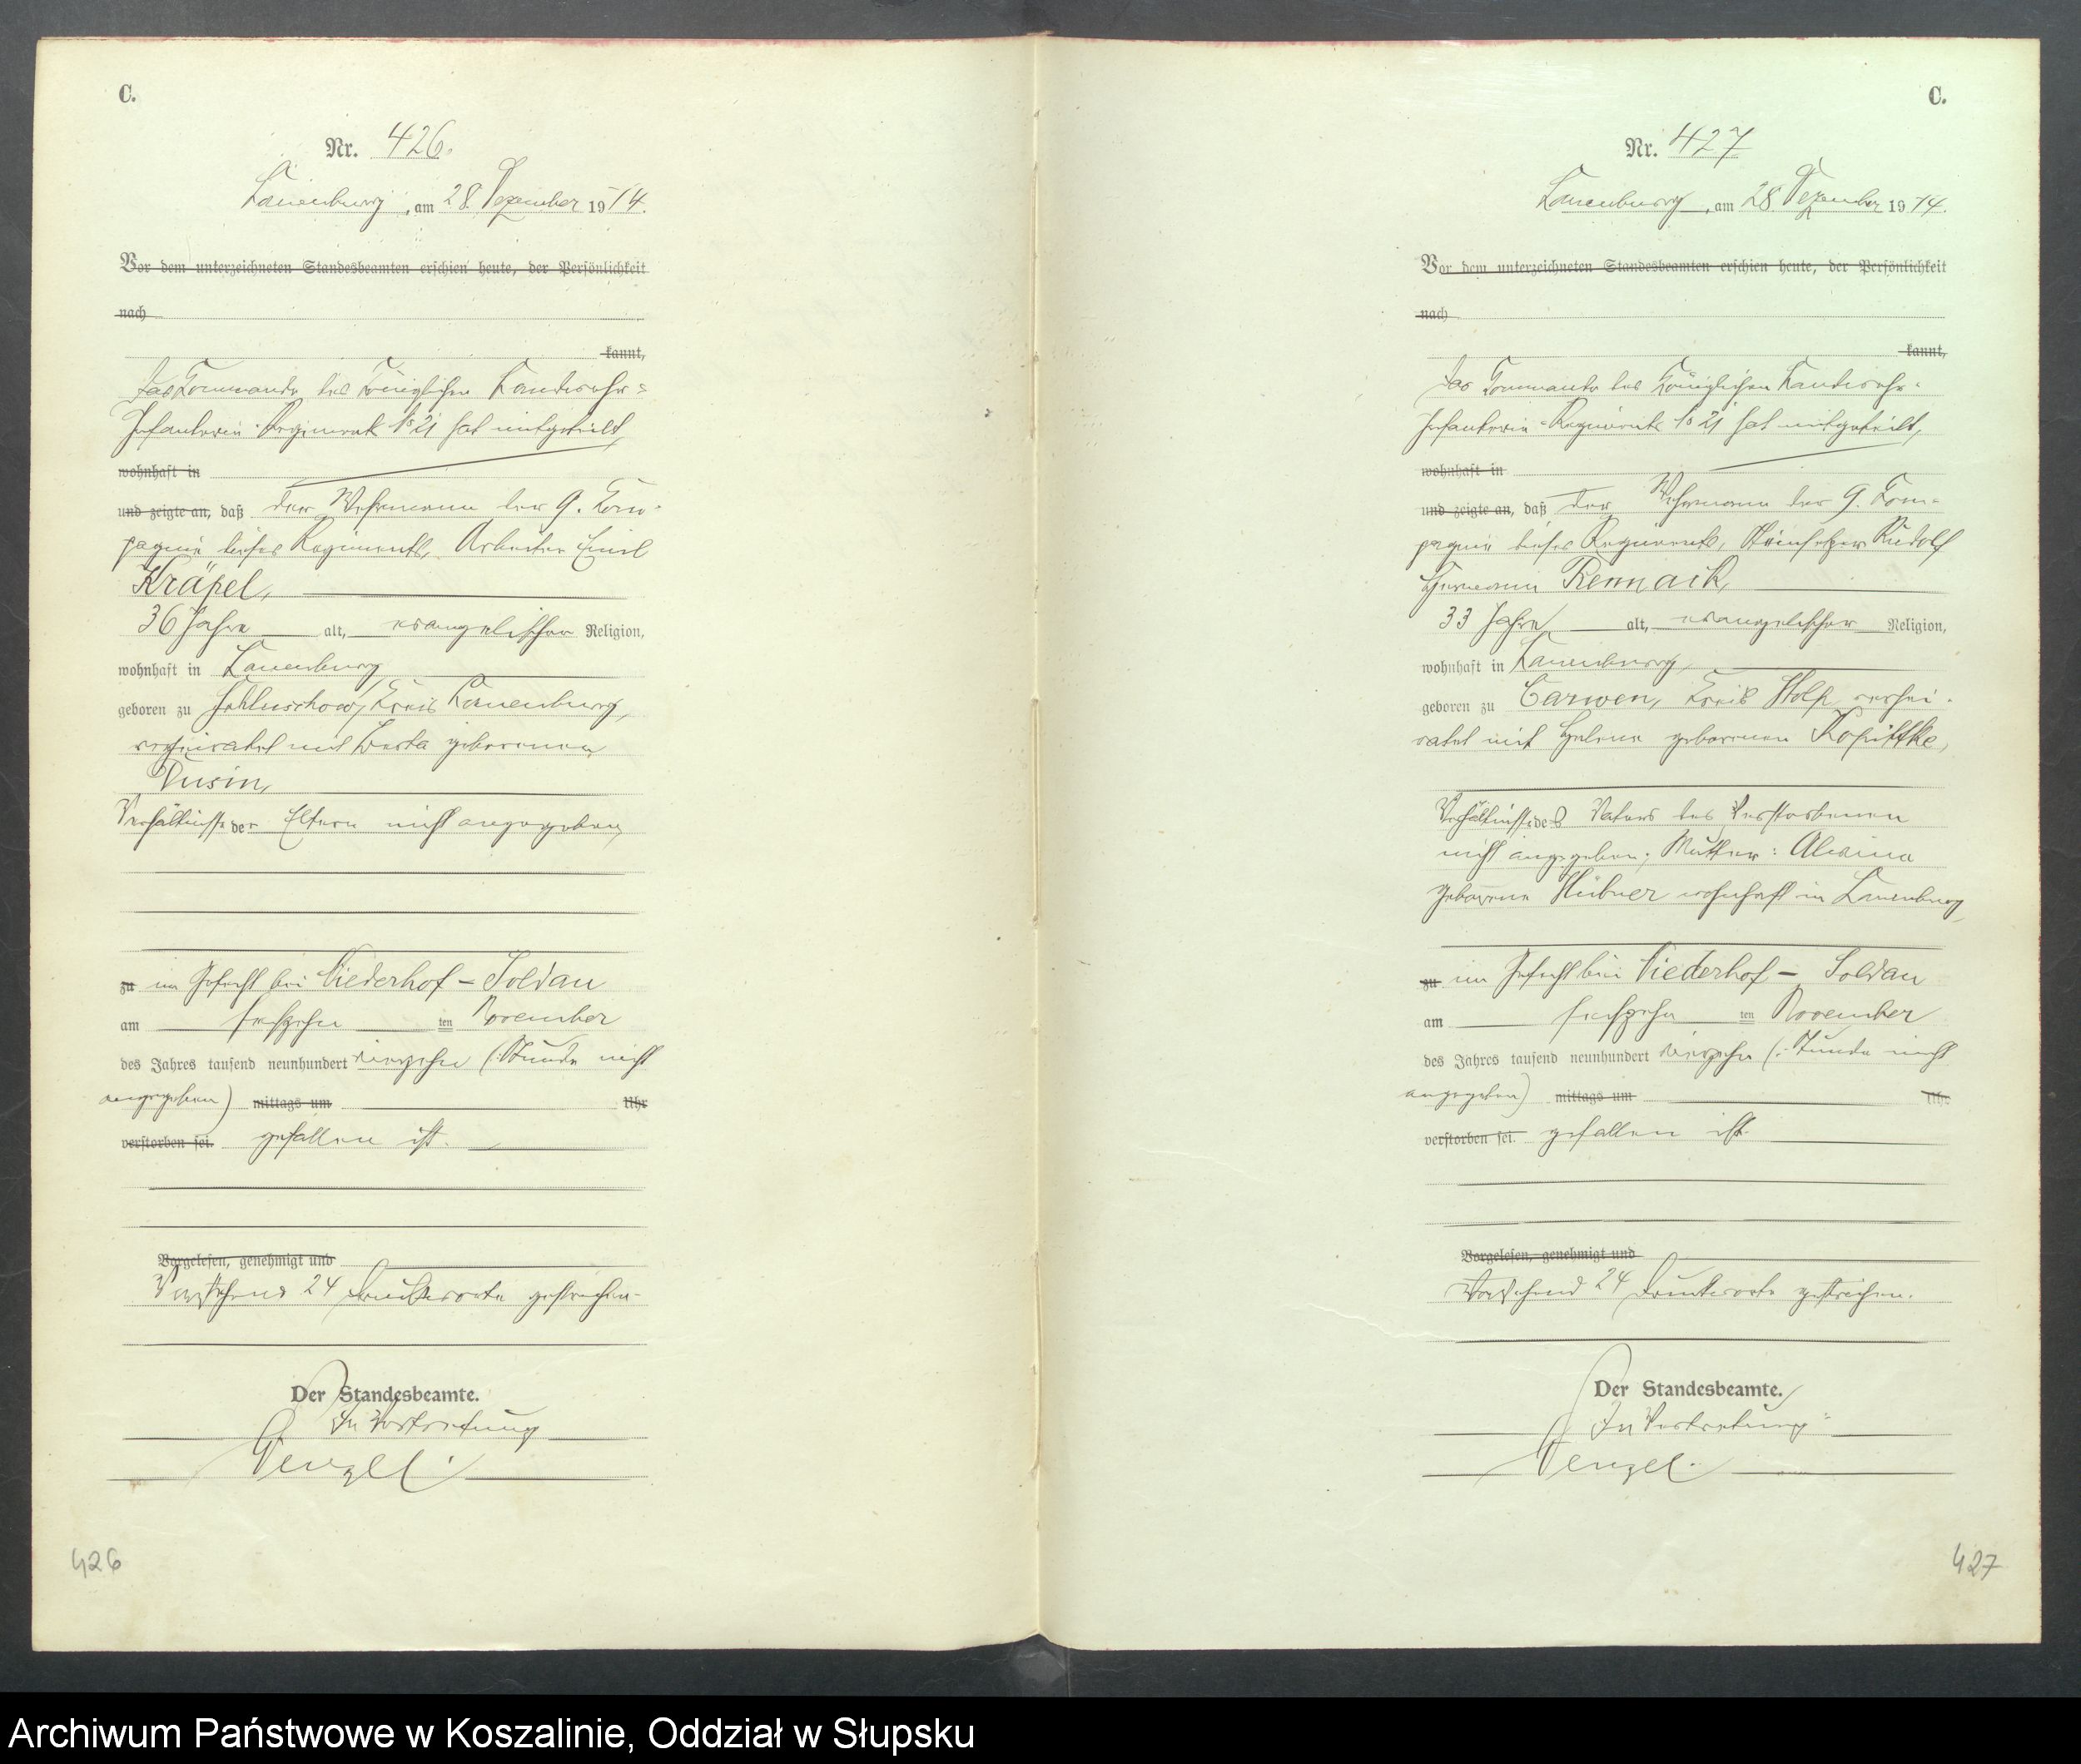 C.
Nr. 426.
Lauenburg, am 28. Dezember 1914.
Vor dem unterzeichneten Standesbeamten erschien heute, der Persönlichkeit
nach
kannt,
das Commando des Königlichen Landwehr-
Infanterie-Regiments No 21 hat mitgeteilt,
wohnhaft in
und zeigte an, daß der Wehrmann der 9. Com-
pagnie dieses Regiments, Arbeiter Emil
Kräpel,
36 Jahre alt, evangelischer Religion,
wohnhaft in Lauenburg
geboren zu Schluschow, Kreis Lauenburg,
verheiratet mit Berta geborenen
Dusin,
Verhältnisse der Eltern nicht angegeben,
zu im Gefecht bei Niederhof - Soldau
am sechszehn ten November
des Jahres tausend neunhundert vierzehn (: Stunde nicht
angegeben) mittags um Uhr
verstorben sei. gefallen ist.
Vorgelesen, genehmigt und
Vorstehend 24 Druckworte gestrichen.
Der Standesbeamte.
In Vertretung
Wenzel.
426
C.
Nr. 427
Lauenburg, am 28. Dezember 1914.
Vor dem unterzeichneten Standesbeamten erschien heute, der Persönlichkeit
nach
kannt,
das Commando des Königlichen Landwehr-
Infanterie-Regiments No 21 hat mitgeteilt,
wohnhaft in
und zeigte an, daß der Wehrmann der 9. Com-
pagnie dieses Regiments, Steinsetzer Rudolf
Hermann Rennack,
33 Jahre alt, evangelischer Religion,
wohnhaft in Lauenburg,
geboren zu Carwen, Kreis Stolp, verhei-
ratet mit Helene geborenen Kopittke,
Verhältnisse des Vaters des Verstorbenen
nicht angegeben; Mutter: Alwina
geborene Hübner wohnhaft in Lauenburg,
zu im Gefecht bei Niederhof - Soldau
am sechszehn ten November
des Jahres tausend neunhundert vierzehn (: Stunde nicht
angegeben) mittags um Uhr
verstorben sei. gefallen ist.
Vorgelesen, genehmigt und
Vorstehend 24 Druckworte gestrichen.
Der Standesbeamte.
In Vertretung
Wenzel.
427
Archiwum Państwowe w Koszalinie, Oddział w Słupsku